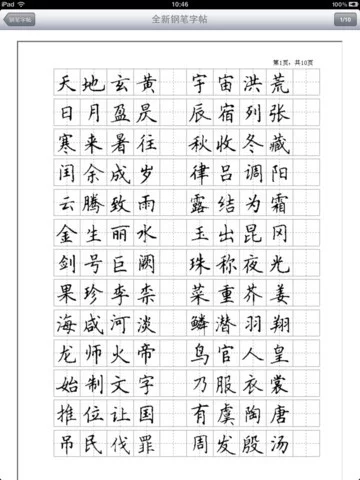 iPad 10:46 100%
钢笔字帖 全新钢笔字帖 1/10
第1页，共10页
天地玄黄 宇宙洪荒
日月盈昃 辰宿列张
寒来暑往 秋收冬藏
闰余成岁 律吕调阳
云腾致雨 露结为霜
金生丽水 玉出昆冈
剑号巨阙 珠称夜光
果珍李柰 菜重芥姜
海咸河淡 鳞潜羽翔
龙师火帝 鸟官人皇
始制文字 乃服衣裳
推位让国 有虞陶唐
吊民伐罪 周发殷汤